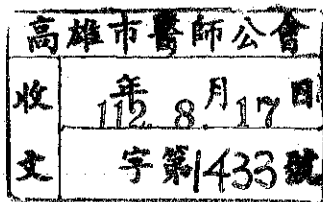 高雄市醫師公會
收文
112年8月17日
字第1433號